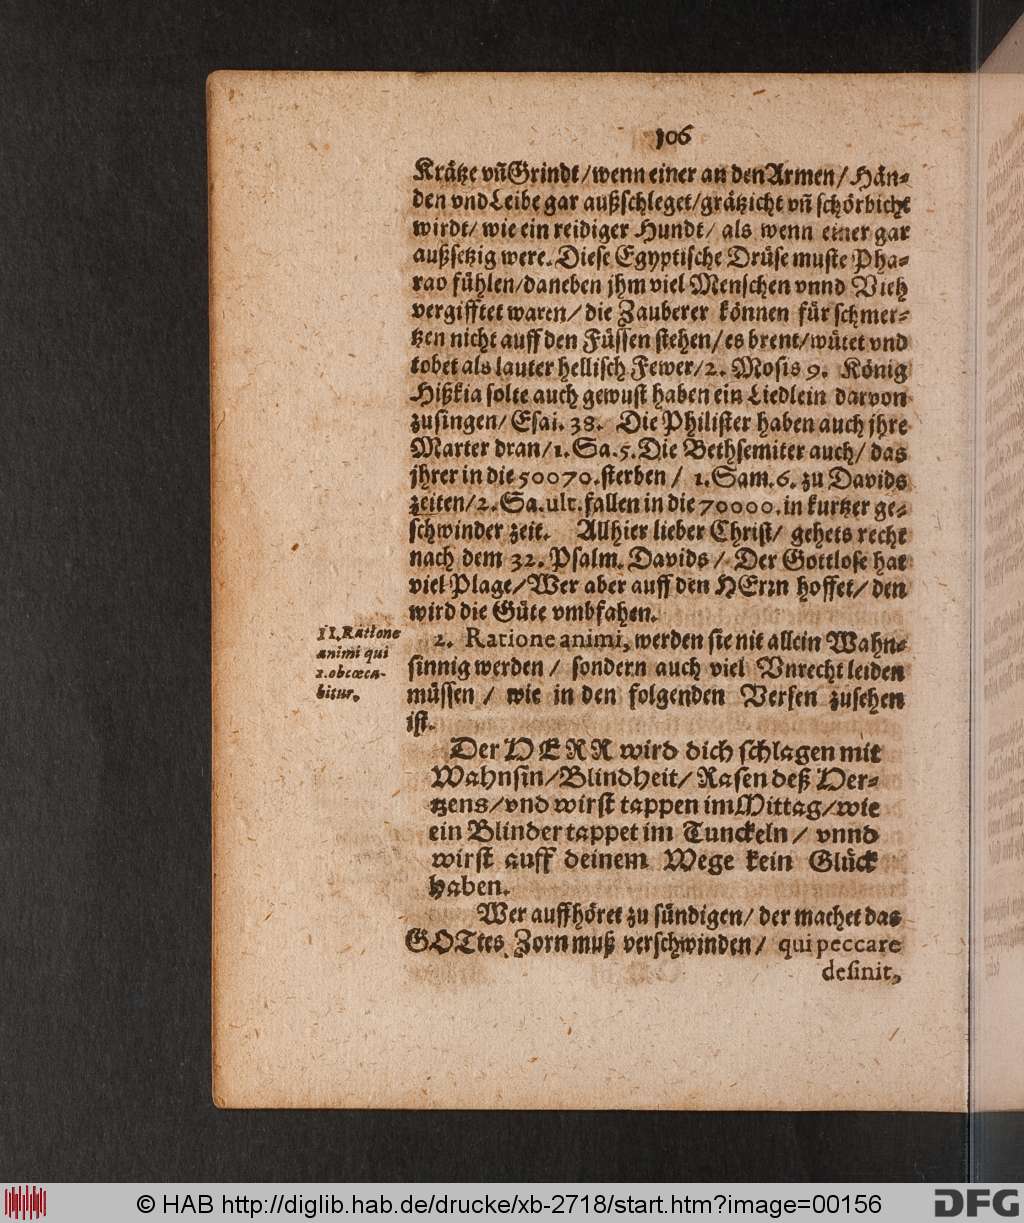 106
Krätze vñ Grindt / wenn einer an den Armen / Hän-
den vnd Leibe gar außschleget / grätzicht vñ schörbicht
wirdt / wie ein reidiger Hundt / als wenn einer gar
außsetzig were. Diese Egyptische Drüse muste Pha-
rao fühlen / daneben jhm viel Menschen vnnd Vieh
vergifftet waren / die Zauberer können für schmer-
tzen nicht auff den Füssen stehen / es brent / wütet vnd
tobet als lauter hellisch Fewer / 2. Mosis 9. König
Hißkia solte auch gewust haben ein Liedlein darvon
zusingen / Esai. 38. Die Philister haben auch jhre
Marter dran / 1. Sa. 5. Die Bethsemiter auch / das
jhrer in die 50070. sterben / 1. Sam. 6. zu Davids
zeiten / 2. Sa. ult. fallen in die 70000. in kurtzer ge-
schwinder zeit. Allhier lieber Christ / gehets recht
nach dem 32. Psalm. Davids / Der Gottlose hat
viel Plage / Wer aber auff den HErrn hoffet / den
wird die Güte vmbfahen.
II. Ratione
animi qui
2. obcœca-
bitur.
2. Ratione animi, werden sie nit allein Wahn-
sinnig werden / sondern auch viel Vnrecht leiden
müssen / wie in den folgenden Versen zusehen
ist.
Der HERR wird dich schlagen mit
Wahnsin / Blindheit / Rasen deß Her-
tzens / vnd wirst tappen im Mittag / wie
ein Blinder tappet im Tunckeln / vnnd
wirst auff deinem Wege kein Glück
haben.
Wer auffhöret zu sündigen / der machet das
GOTtes Zorn muß verschwinden / qui peccare
desinit,
© HAB http://diglib.hab.de/drucke/xb-2718/start.htm?image=00156
DFG